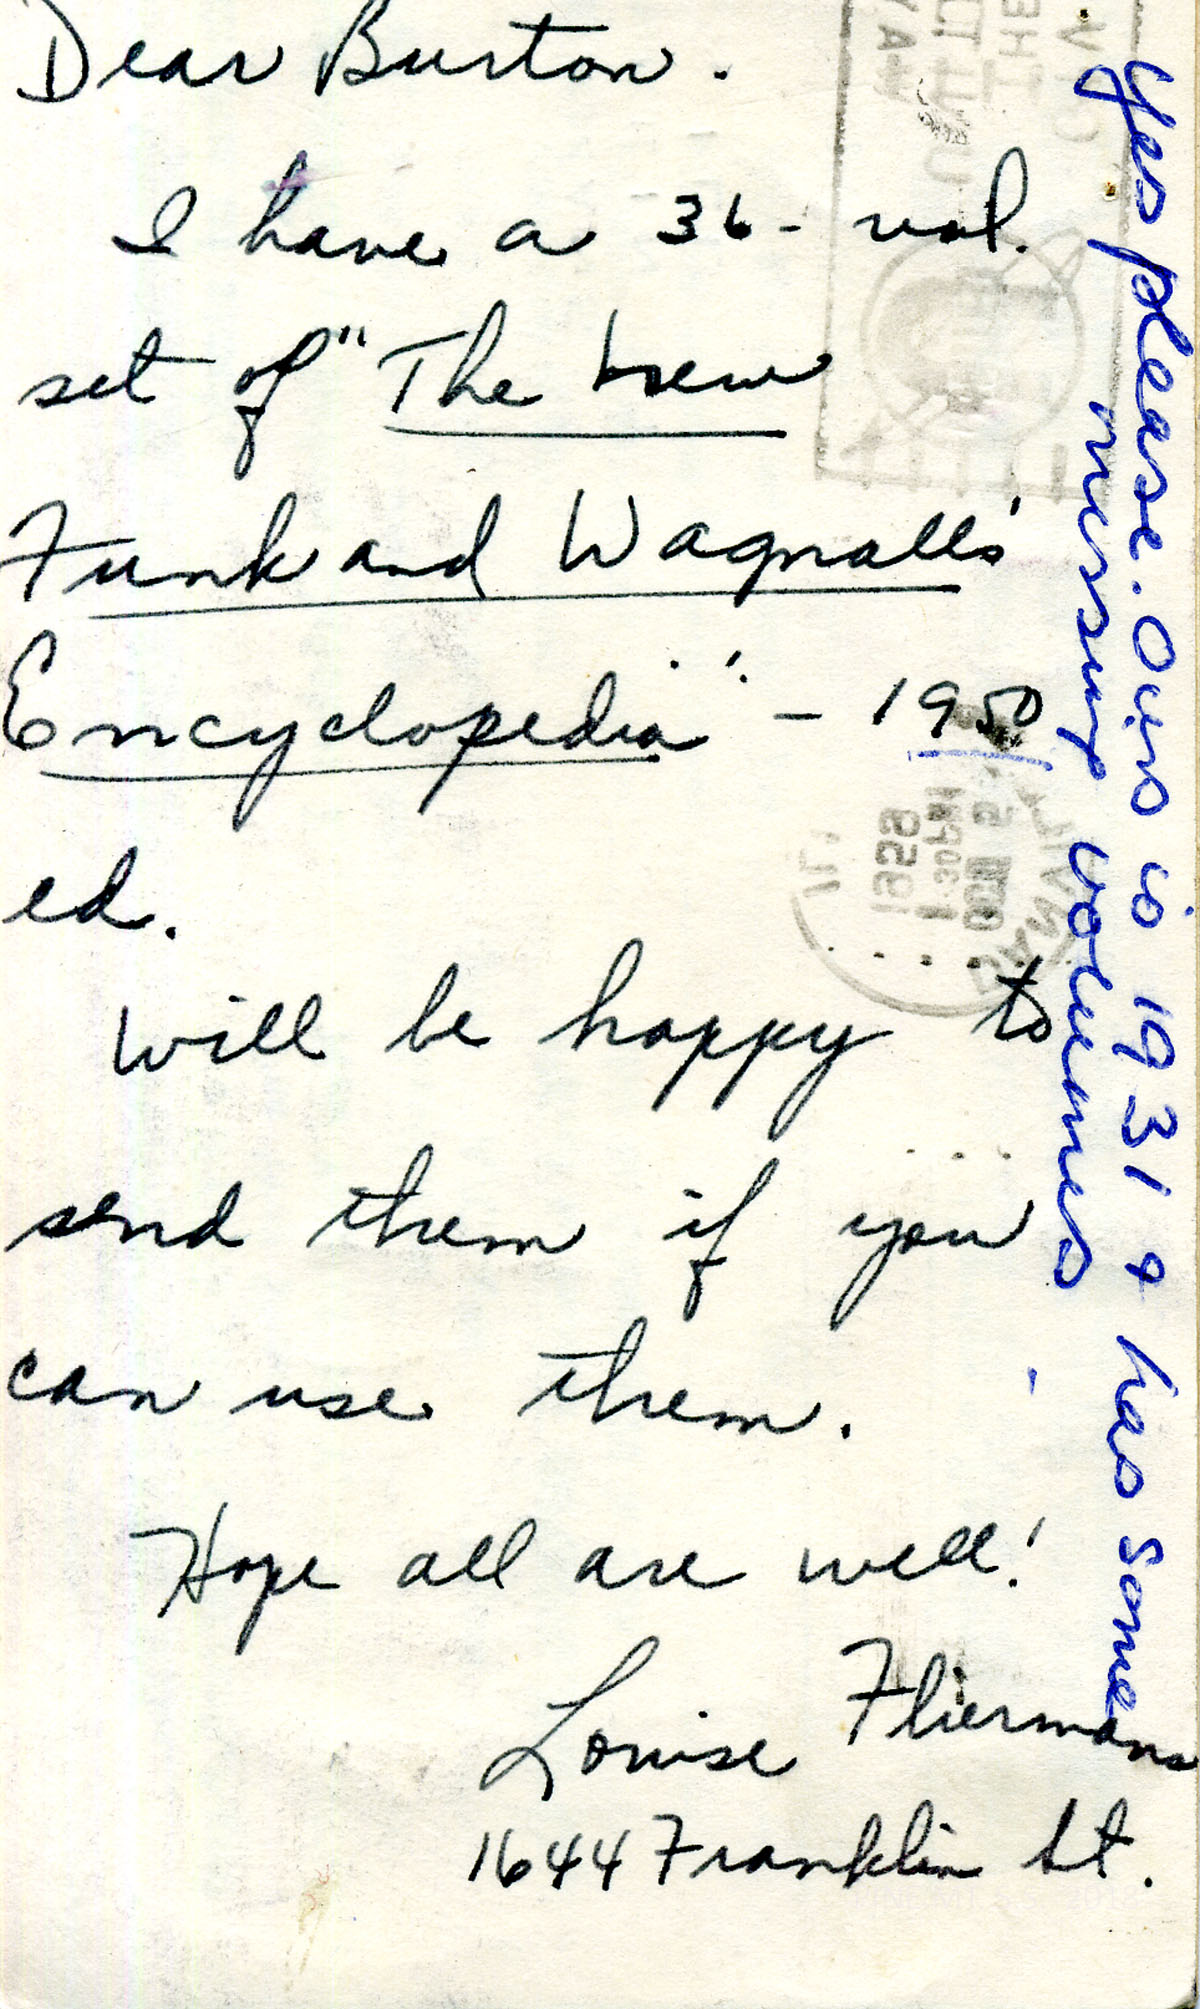 Dear Burton.
I have a 36-vol.
set of "The new
Funk and Wagnalls'
Encyclopedia" - 1950
ed.
Will be happy to
send them if you
can use them.
Hope all are well!
Louise Fliermans
1644 Franklin St.
Yes please. Ours is 1931 & has some
missing volumes
1959